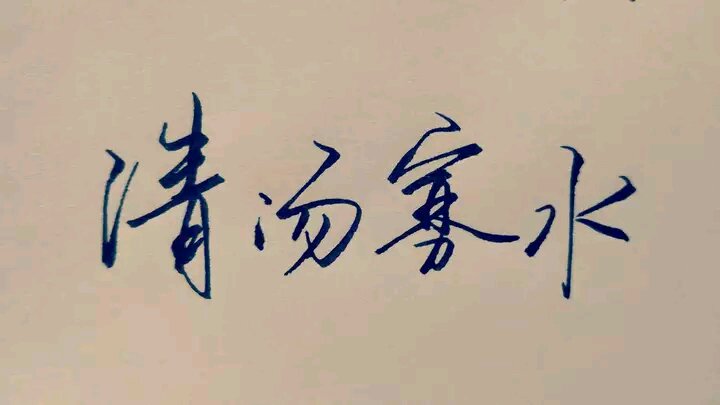 清汤寡水